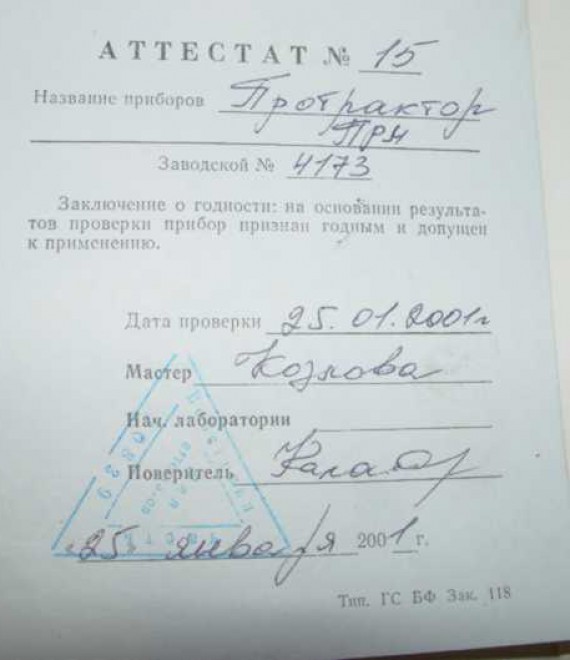 АТТЕСТАТ № 15
Название приборов Протрактор
ПРМ
Заводской № 4173
Заключение о годности: на основании результа-
тов проверки прибор признан годным и допущен
к применению.
Дата проверки 25.01.2001г
Мастер Козлова
Нач. лаборатории
Поверитель
"25" января 2001 г.
Тип. ГС БФ Зак. 118